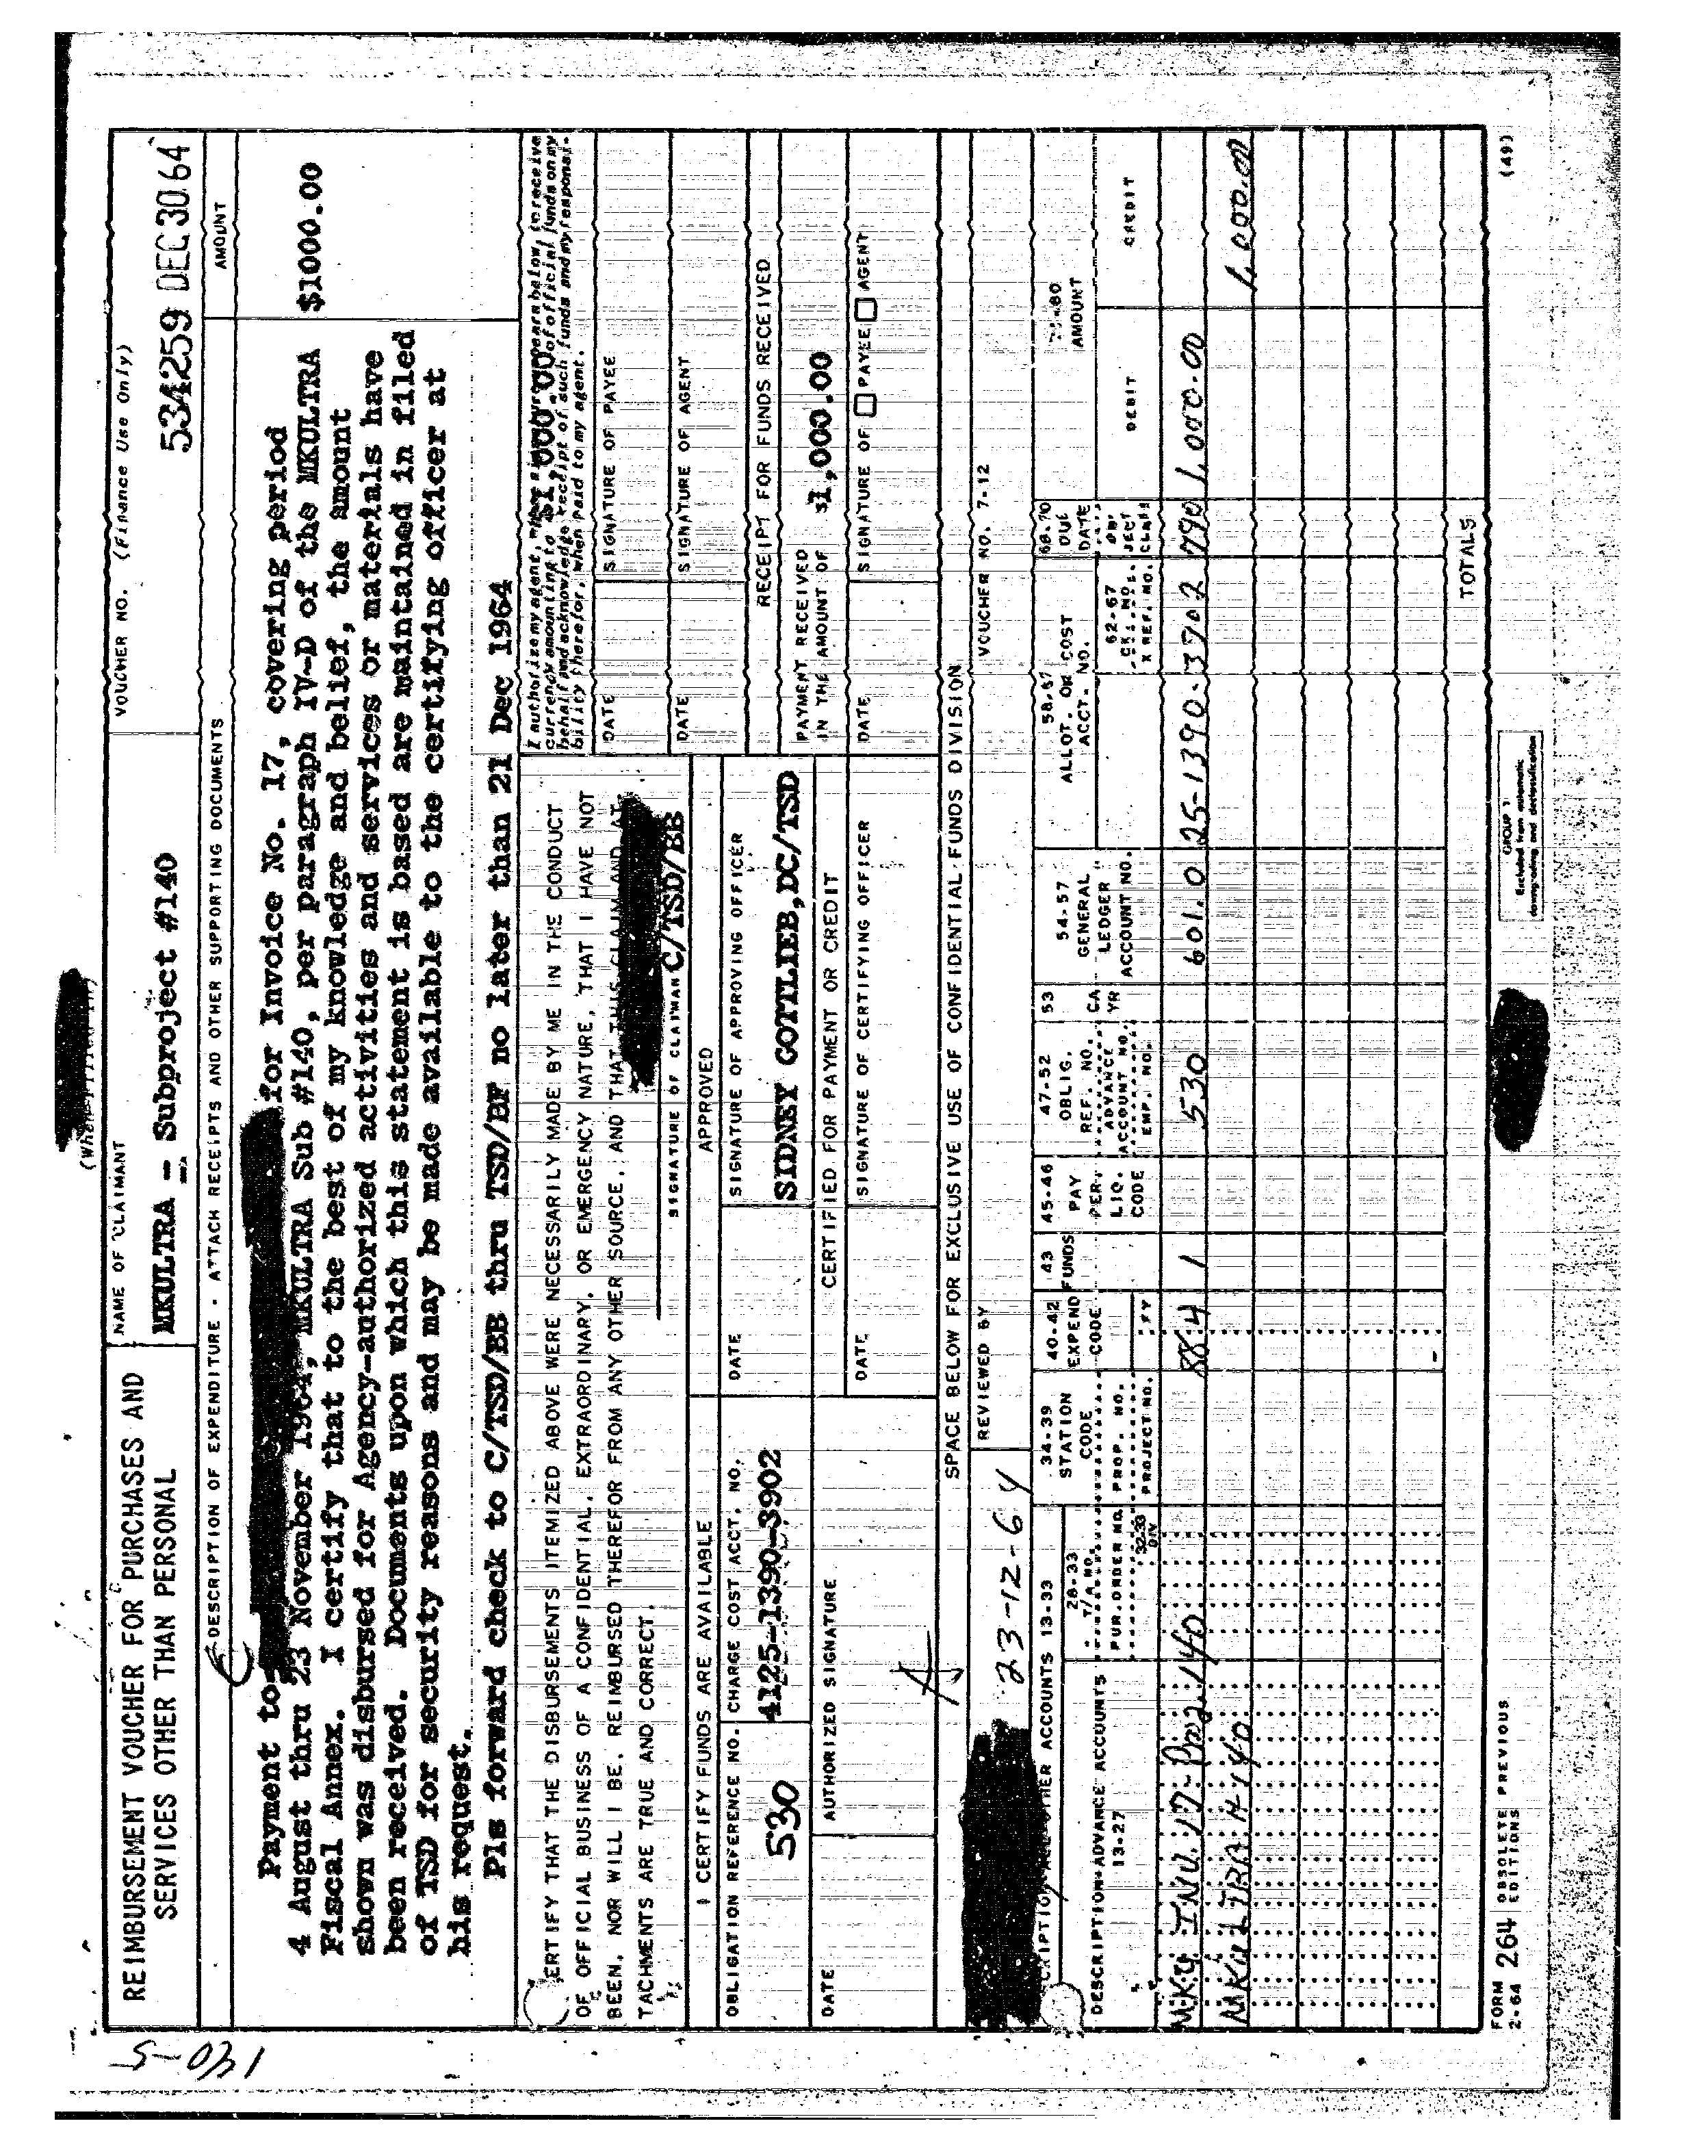 140-5
(When Filled In)
REIMBURSEMENT VOUCHER FOR PURCHASES AND
SERVICES OTHER THAN PERSONAL
NAME OF CLAIMANT
MKULTRA - Subproject #140
VOUCHER NO. (Finance Use Only)
534259 DEC 30 64
DESCRIPTION OF EXPENDITURE - ATTACH RECEIPTS AND OTHER SUPPORTING DOCUMENTS
AMOUNT
Payment to for Invoice No. 17, covering period
4 August thru 23 November 1964, MKULTRA Sub #140, per paragraph IV-D of the MKULTRA $1000.00
Fiscal Annex. I certify that to the best of my knowledge and belief, the amount
shown was disbursed for Agency-authorized activities and services or materials have
been received. Documents upon which this statement is based are maintained in filed
of TSD for security reasons and may be made available to the certifying officer at
his request.
Pls forward check to C/TSD/BB thru TSD/BF no later than 21 Dec 1964
ERTIFY THAT THE DISBURSEMENTS ITEMIZED ABOVE WERE NECESSARILY MADE BY ME IN THE CONDUCT
OF OFFICIAL BUSINESS OF A CONFIDENTIAL, EXTRAORDINARY, OR EMERGENCY NATURE, THAT I HAVE NOT
BEEN, NOR WILL I BE, REIMBURSED THEREFOR FROM ANY OTHER SOURCE, AND THAT THIS CLAIM AND AT-
TACHMENTS ARE TRUE AND CORRECT.
C/TSD/BB
SIGNATURE OF CLAIMAN
I authorize my agent, whose signature appears below, to receive
currency amounting to $1,000.00 of official funds on my
behalf and acknowledge receipt of such funds and my responsi-
bility therefor, when paid to my agent.
DATE
SIGNATURE OF PAYEE
DATE
SIGNATURE OF AGENT
I CERTIFY FUNDS ARE AVAILABLE
APPROVED
RECEIPT FOR FUNDS RECEIVED
OBLIGATION REFERENCE NO.
530
CHARGE COST ACCT. NO.
4125-1390-3902
DATE
SIGNATURE OF APPROVING OFFICER
SIDNEY GOTTLIEB,DC/TSD
PAYMENT RECEIVED
IN THE AMOUNT OF $1,000.00
DATE
AUTHORIZED SIGNATURE
CERTIFIED FOR PAYMENT OR CREDIT
DATE
SIGNATURE OF CERTIFYING OFFICER
DATE
SIGNATURE OF PAYEE AGENT
SPACE BELOW FOR EXCLUSIVE USE OF CONFIDENTIAL FUNDS DIVISION
23-12-64
REVIEWED BY
VOUCHER NO. 7-12
OTHER ACCOUNTS 13-33
DESCRIPTION-ADVANCE ACCOUNTS
13-27
28-33
T/A NO.
PUR.ORDER NO.
34-39
STATION
CODE
PROP. NO.
PROJECT NO.
40-42
EXPEND
CODE
FY
43
FUNDS
45-46
PAY
PER.
LIQ.
CODE
47-52
OBLIG.
REF. NO.
ADVANCE
ACCOUNT NO.
EMP. NO.
53
CA
YR
54-57
GENERAL
LEDGER
ACCOUNT NO.
ALLOT. OR COST
ACCT. NO.
62-67
X REF. NO.
68-70
DUE
DATE
OBJECT
CLASS
AMOUNT
DEBIT
CREDIT
884 1 530 601.0 25-1390-3902 790 1,000.00
1,000.00
TOTALS
FORM
2-64
264
OBSOLETE PREVIOUS
EDITIONS
GROUP 1
Excluded from automatic
downgrading and declassification
(49)